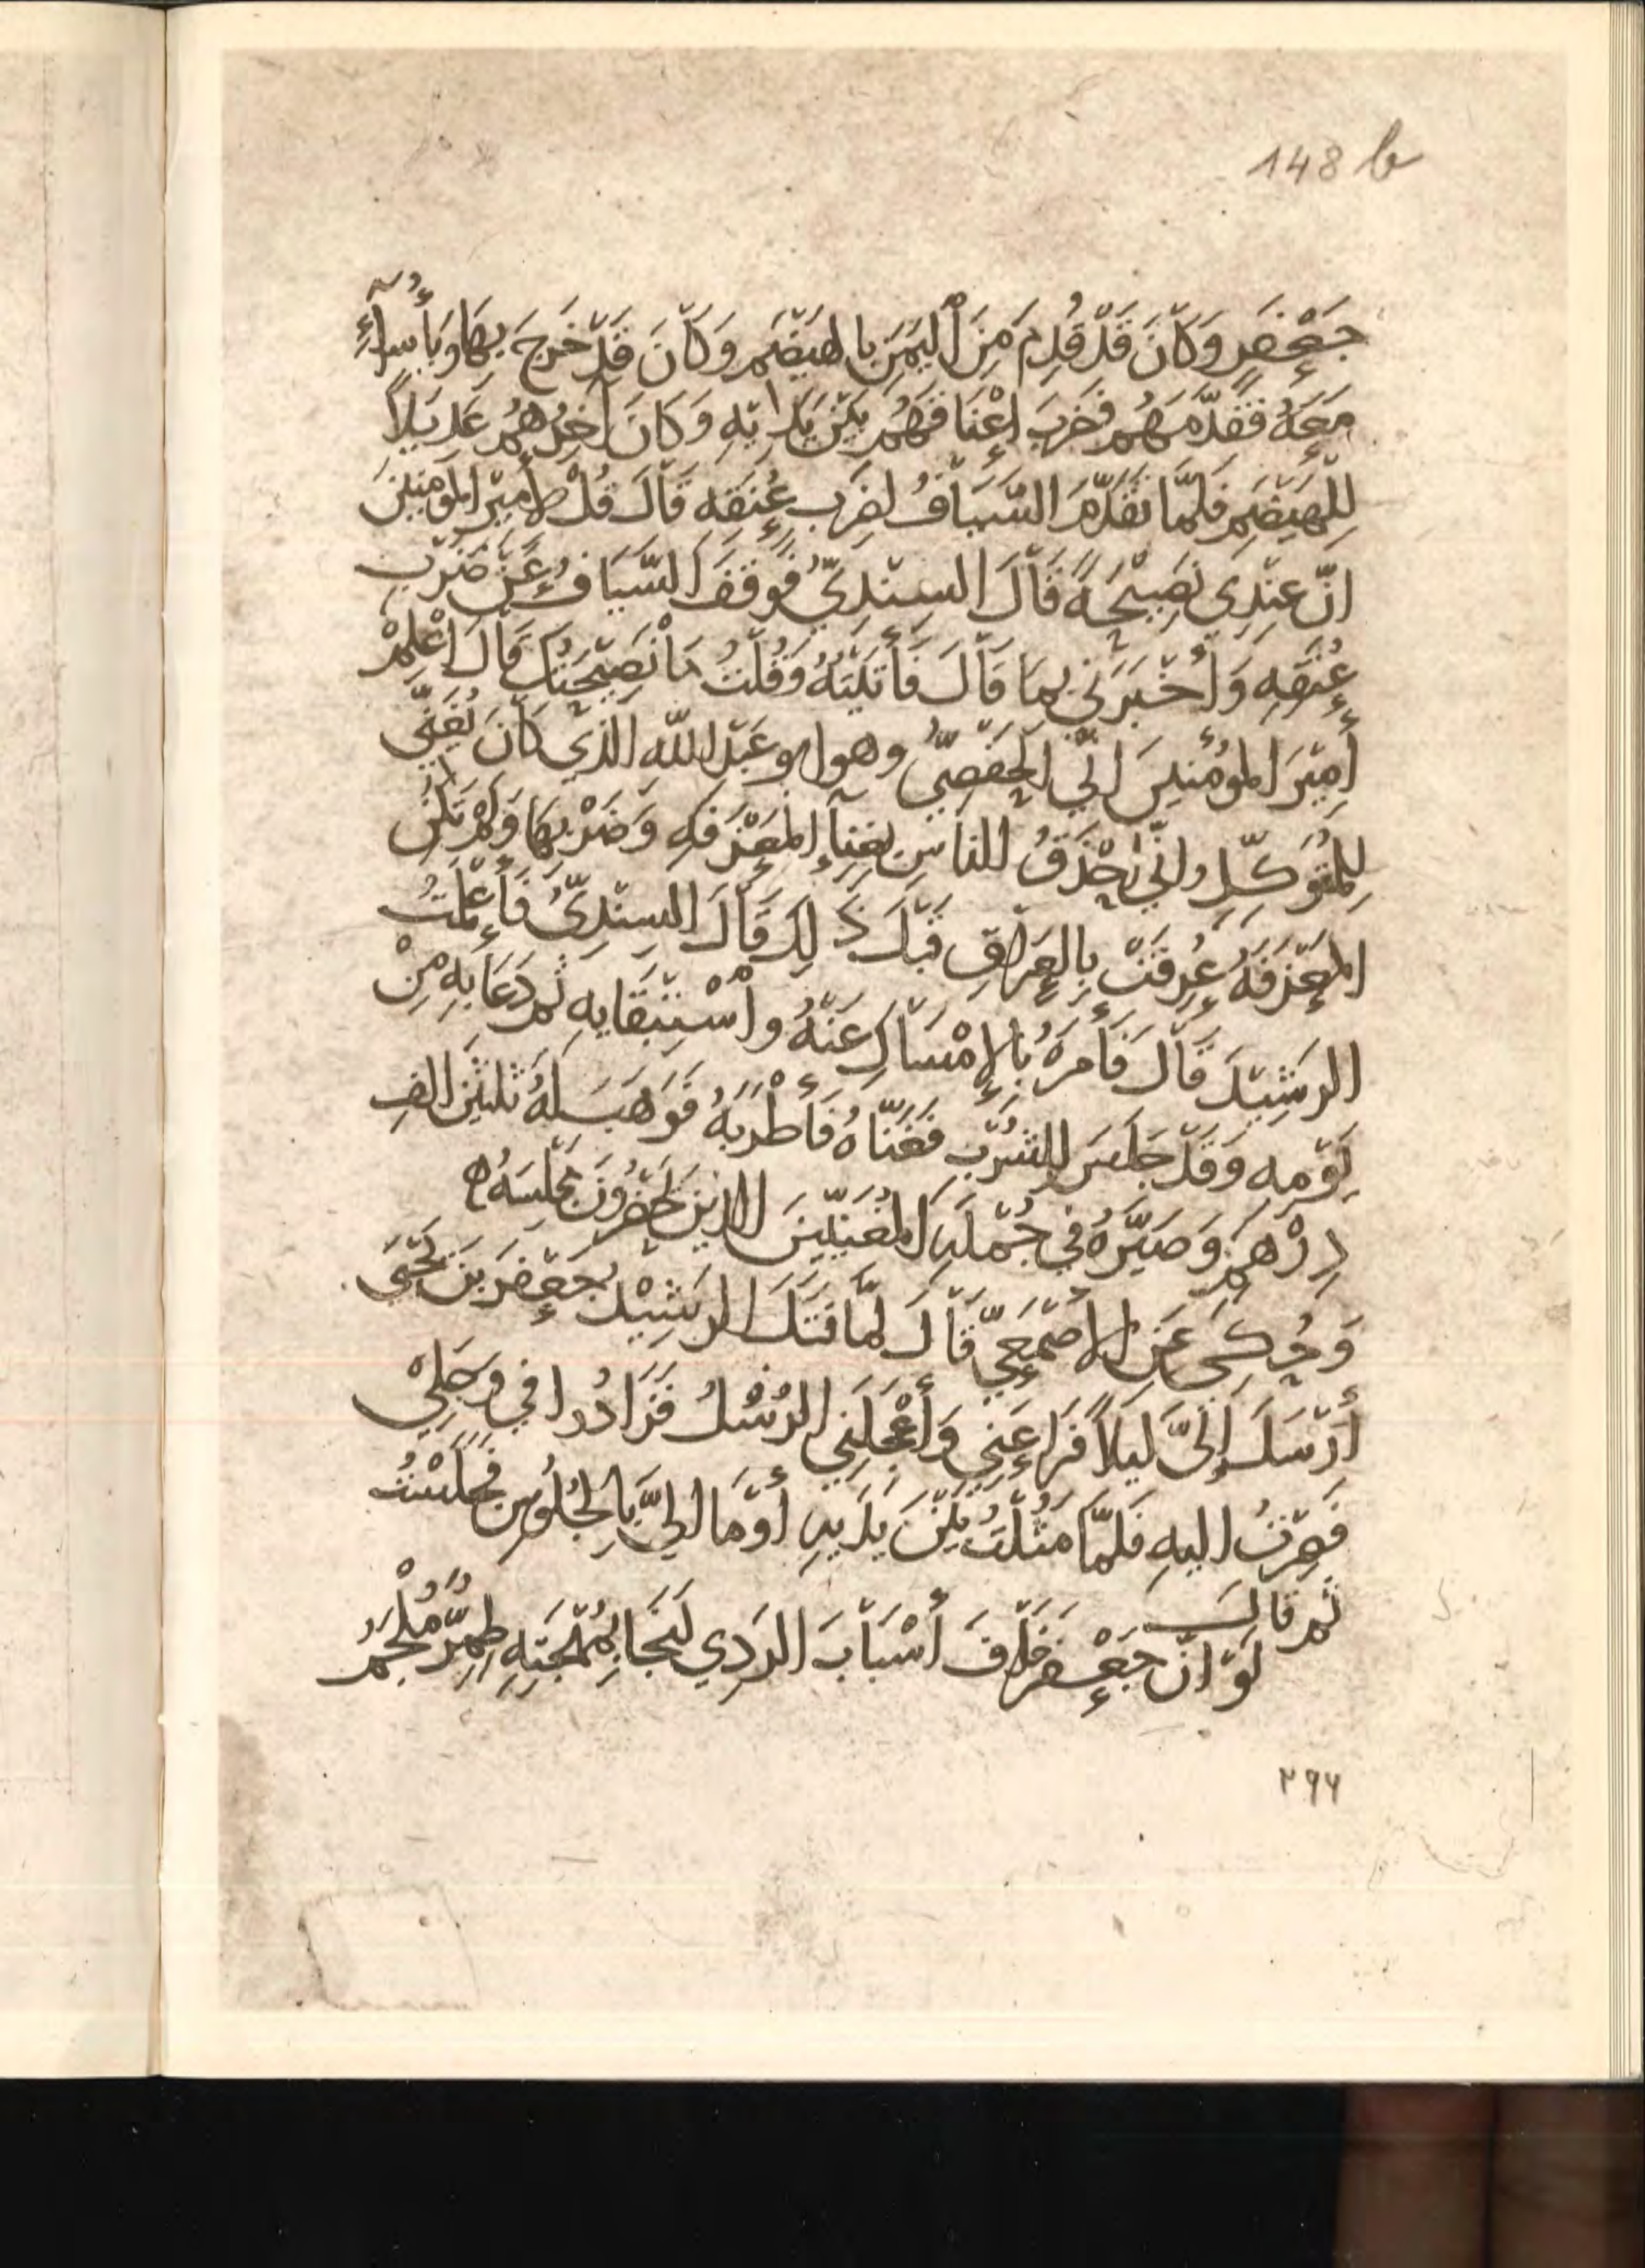 148 b
جَعْفَرٍ وَكَانَ قَدْ قُدِمَ مِنَ اْليَمَنِ بالهَيْضَمِ وَكَانَ قَدْ خَرَجَ بِهَا وَبِأُسَرآءِ
مَعَهُ فقدّمَهُم فضرَبَ اعْنَاقَهُم بَيْنَ يَدَايْهِ وَكَانَ آخِرُهُمْ عَدِيلًا
لِلهَيْضَمِ فلمّا تقَدّمَ السَّيّافُ لضَرْبِ عُنقِه قَالَ قُلْ لامِيْرِ المؤمنِيْنَ
انّ عِنْدِي نصِيْحَةً قَالَ السِنْدِيّ فَوَقَفَ السَّيّافُ عَنْ ضَرْبِ
عُنقِهِ وَأَخْبَرَنِي بِمَا قَالَ فَأَتَيْتُهُ وَقُلْتُ مَا نَصِيْحَتُكَ قَالَ اعْلِمْ
أمِيْرَ المؤمنينَ انّي الحَفْصِيُّ وهو ابو عَبْدِ اللّهِ الذي كَانَ يُغَنّي
لِلمُتوَكِّلِ وانّي احْذَقُ الناسِ بِغِنآءِ المِعْزفةِ وَضَرْبِهَا وَلَمْ تَكُنِ
المِعْزَفَةُ عُرِفَتْ بِالعِرَاقِ قبْلَ ذَلِكَ قَالَ السِنْدِيّ فَأَعْلمْتُ
الرشِيْدَ قَالَ فَأمَرَهُ بِالإمْسَاكِ عَنْهُ وأسْتِبْقَايِهِ ثم دَعَا بِهِ مِنْ
يَوْمِهِ وَقَدْ جَلسَ لِلشُرْبِ فَغَنّاهُ فَأَطْرَبَهُ فَوَهَبَ لَهُ ثلثِيْنَ الفِ
دِرْهَمٍ وَصَيّرَهُ فِي جُمْلَةِ المُغَنّيْنَ الذيْنَ يَحْضُرُونَ مَجْلِسَهُ ه
وَحُكِيَ عَنِ الاصْمَعِيّ قَالَ لمّا قَتَلَ الرشِيْدُ جَعْفَرَ بنَ يَحْيَى
أرْسَلَ إلَيَّ لَيلاً فَرَاعَنِي وَأعْجَلَنِي الرُسُلُ فَزَادُوا فِي وَجَلِيْ
فَصِرْتُ اليهِ فَلمّا مَثُلْتُ بَيْنَ يَدَيهِ أوْمَا اليَّ بِالجُلُوسِ فجَلَسْتُ
ثم قالَ
لَوْ انّ جَعْفَر خَافَ أسْبَابَ الرَدِي لَنَجَا بِمُهْجَتِهِ طِمِرٌّ مُلْجَمُ
٢٩٦